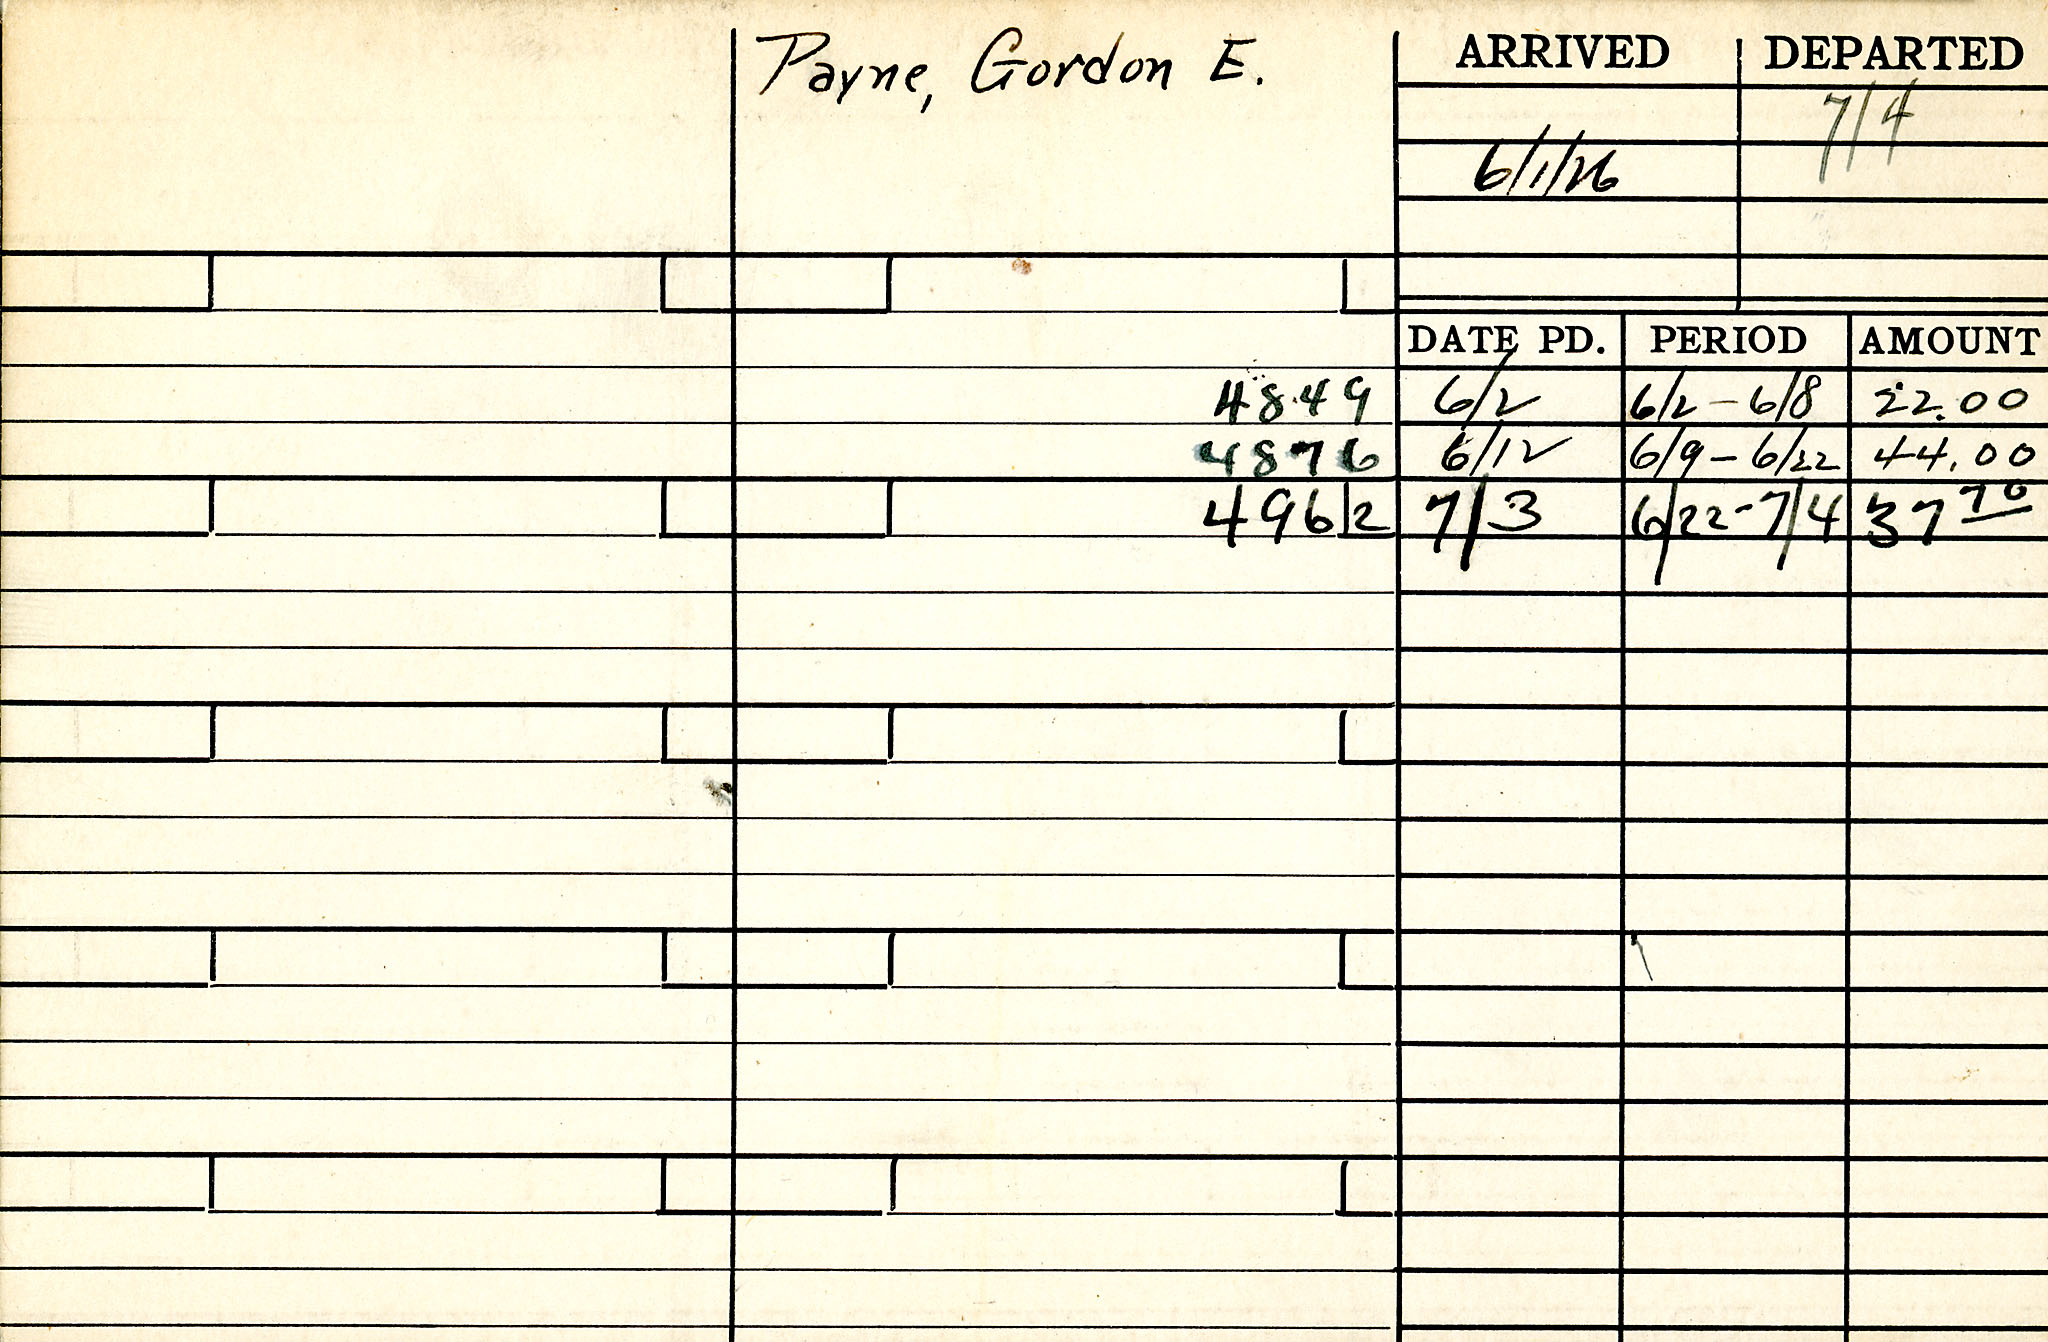 Payne, Gordon E.
ARRIVED DEPARTED
7/4
6/1/26
DATE PD. PERIOD AMOUNT
4849 6/2 6/2-6/8 22.00
4876 6/12 6/9-6/22 44.00
4962 7/3 6/22-7/4 37 70